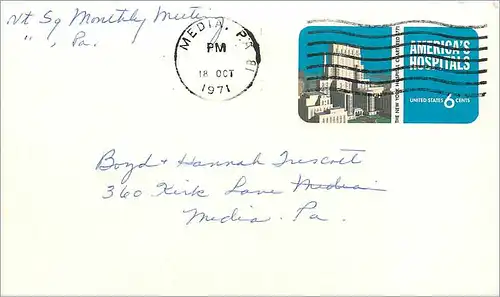 Nt Sq Monthly Meeting
" , Pa.
MEDIA, PA
PM
18 OCT
1971
THE NEW YORK HOSPITAL CHARTERED 1771
AMERICA'S
HOSPITALS
UNITED STATES 6 CENTS
Boyd + Hannah Trescott
360 Kirk Lane Media
Media. Pa.